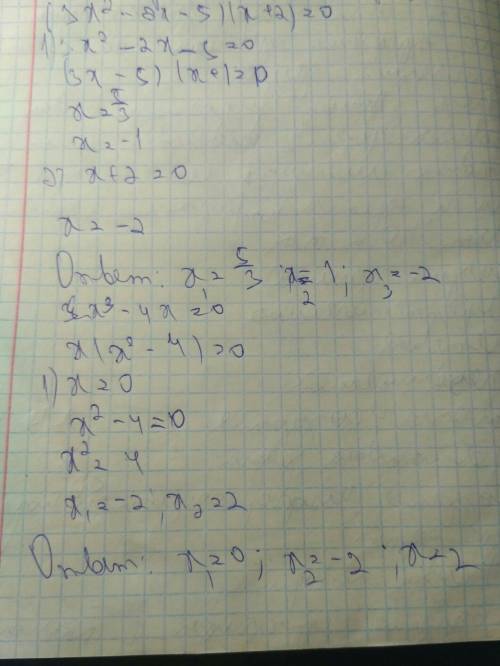 (3x² - 2x - 5)(x+2)=0
1) 3x² - 2x - 5 = 0
(3x - 5)(x+1)=0
x = 5/3
x = -1
2) x+2=0
x = -2
Ответ: x₁ = 5/3 ; x₂ = 1 ; x₃ = -2
x³ - 4x = 0
x(x² - 4)=0
1) x=0
x² - 4=0
x² = 4
x₁ = -2 ; x₂ = 2
Ответ: x₁ = 0 ; x₂ = -2 ; x = 2